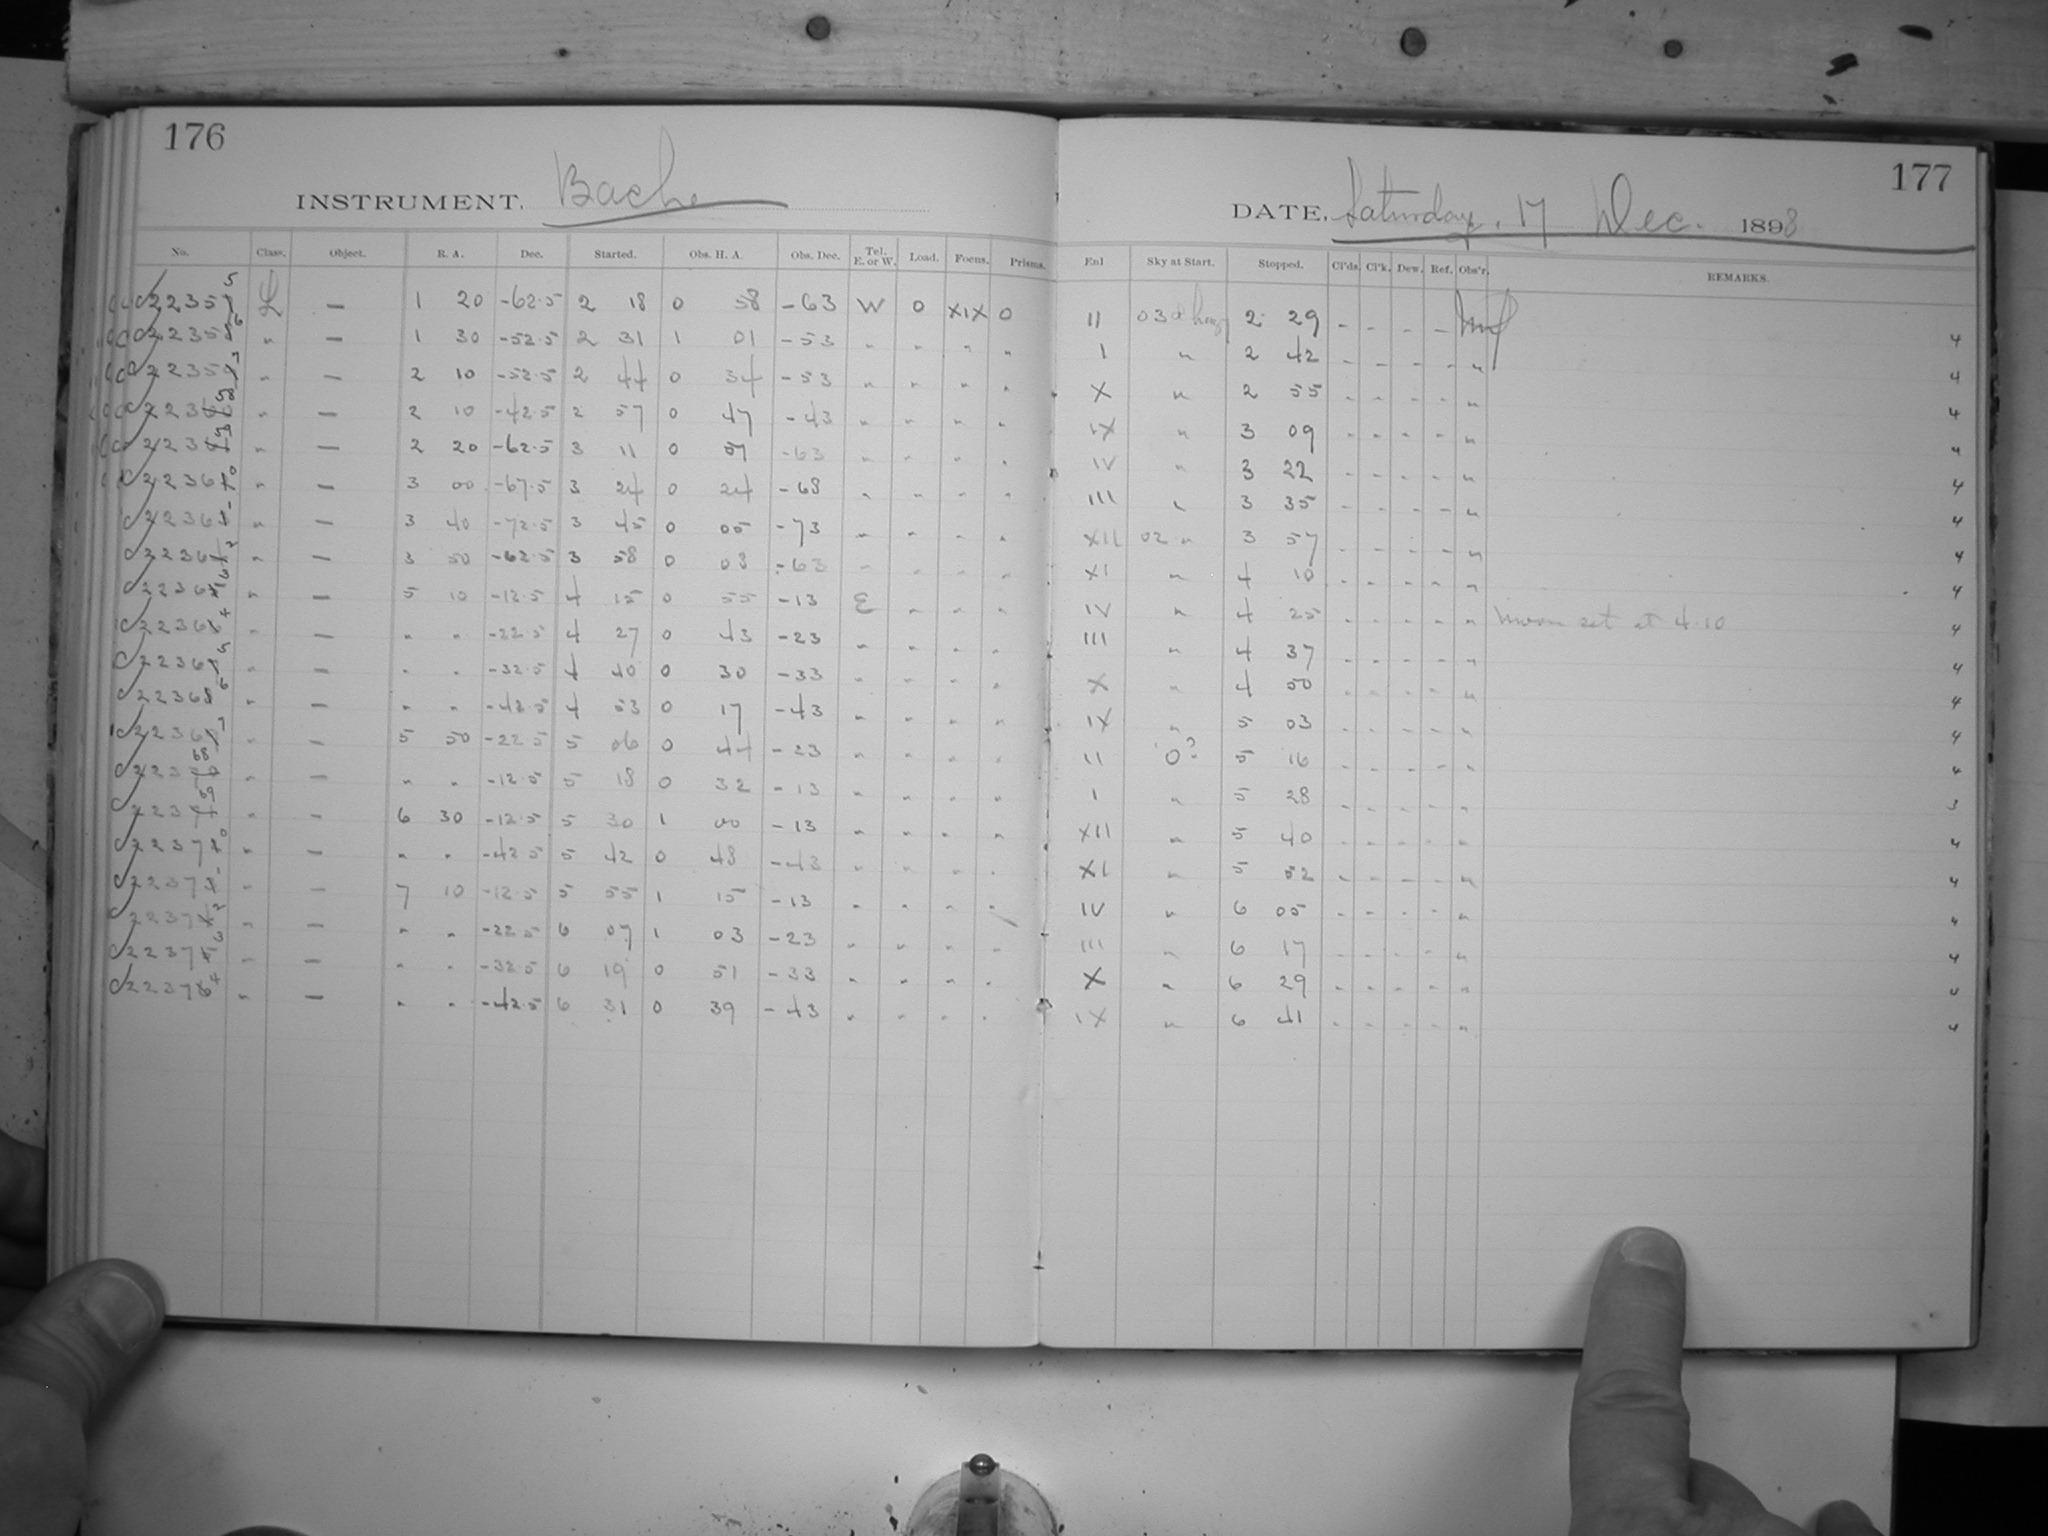 176
INSTRUMENT. Bache
No. Class. Object. R. A. Dec. Started. Obs. H. A. Obs. Dec. Tel. E. or W. Load. Focus. Prisms.
L — 1 20 -62.5 2 18 0 58 -63 W 0 XIX 0
" — 1 30 -52.5 2 31 1 01 -53 " " " "
" — 2 10 -52.5 2 44 0 34 -53 " " " "
" — 2 10 -42.5 2 57 0 47 -43 " " " "
" — 2 20 -62.5 3 11 0 -63 " " " "
" — 3 00 -67.5 3 24 0 24 -68 " " " "
" — 3 40 -72.5 3 45 0 05 -73 " " " "
" — 3 50 -62.5 3 58 0 08 -63 " " " "
" — 5 10 -12.5 4 15 0 55 -13 E " " "
" — " " -22.5 4 27 0 43 -23 " " " "
" — " " -32.5 4 40 0 30 -33 " " " "
" — " " -42.5 4 53 0 17 -43 " " " "
" — 5 50 -22.5 5 06 0 44 -23 " " " "
" — " " -12.5 5 18 0 32 -13 " " " "
" — 6 30 -12.5 5 30 1 00 -13 " " " "
" — " " -42.5 5 42 0 48 -43 " " " "
" — 7 10 -12.5 5 55 1 15 -13 " " " "
" — " " -22.5 6 07 1 03 -23 " " " "
" — " " -32.5 6 19 0 51 -33 " " " "
" — " " -42.5 6 31 0 39 -43 " " " "
177
DATE, Saturday, 17 Dec. 1898
Enl Sky at Start. Stopped. Cl'ds. Cl'k. Dew. Ref. Obs'r. REMARKS.
II 2 29 - - - - 4
I " 2 42 - - - - " 4
X " 2 55 - - - - " 4
IX " 3 09 - - - - " 4
IV " 3 22 - - - - " 4
III " 3 35 - - - - " 4
XII 02 " 3 57 - - - - " 4
XI " 4 10 - - - - " 4
IV " 4 25 - - - - " moon set at 4.10 4
III " 4 37 - - - - " 4
X " 4 50 - - - - " 4
IX " 5 03 - - - - " 4
II 0? 5 16 - - - - " 4
I " 5 28 - - - - " 3
XII " 5 40 - - - - " 4
XI " 5 52 - - - - " 4
IV " 6 05 - - - - " 4
III " 6 17 - - - - " 4
X " 6 29 - - - - " 4
IX " 6 41 - - - - " 4